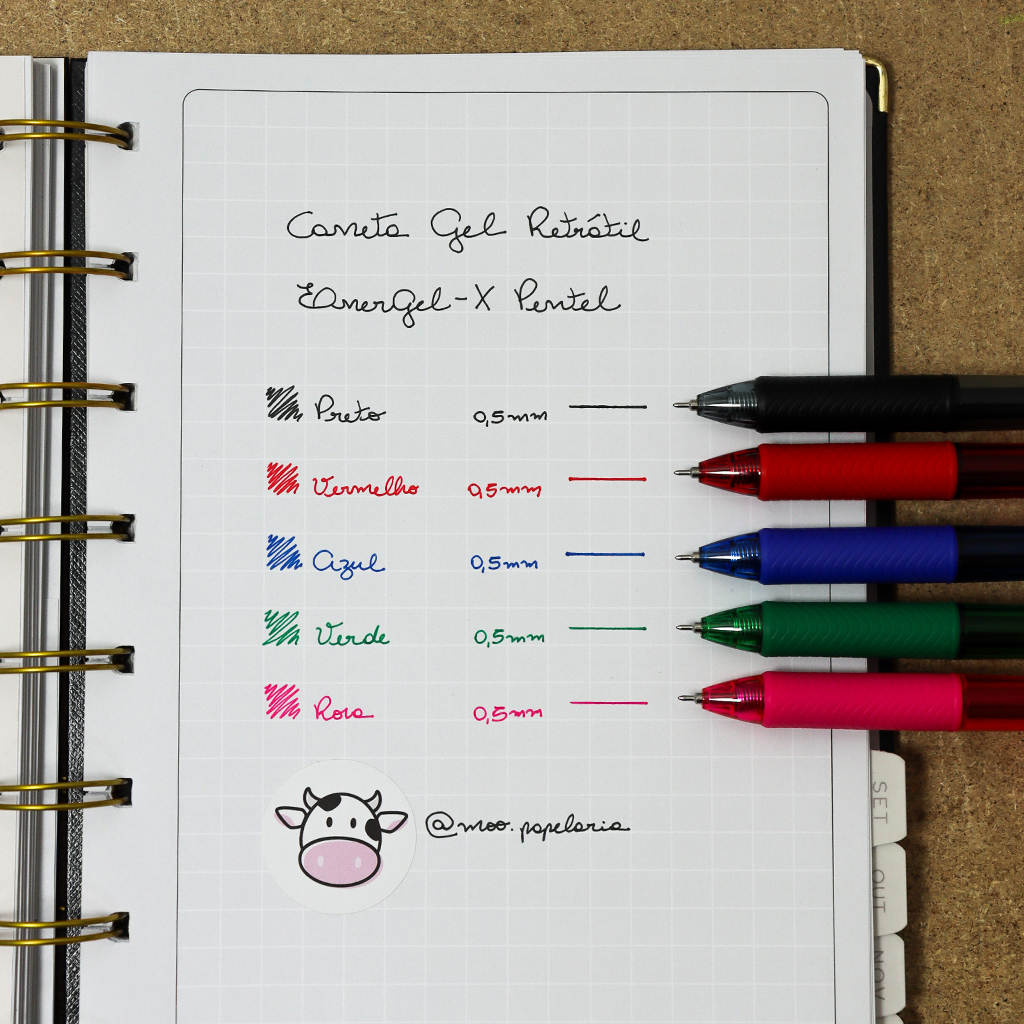 Caneta Gel Retrátil
EnerGel-X Pentel
Preto 0,5mm
Vermelho 0,5mm
Azul 0,5mm
Verde 0,5mm
Rosa 0,5mm
@moo.papelaria
SET
OUT
NOV